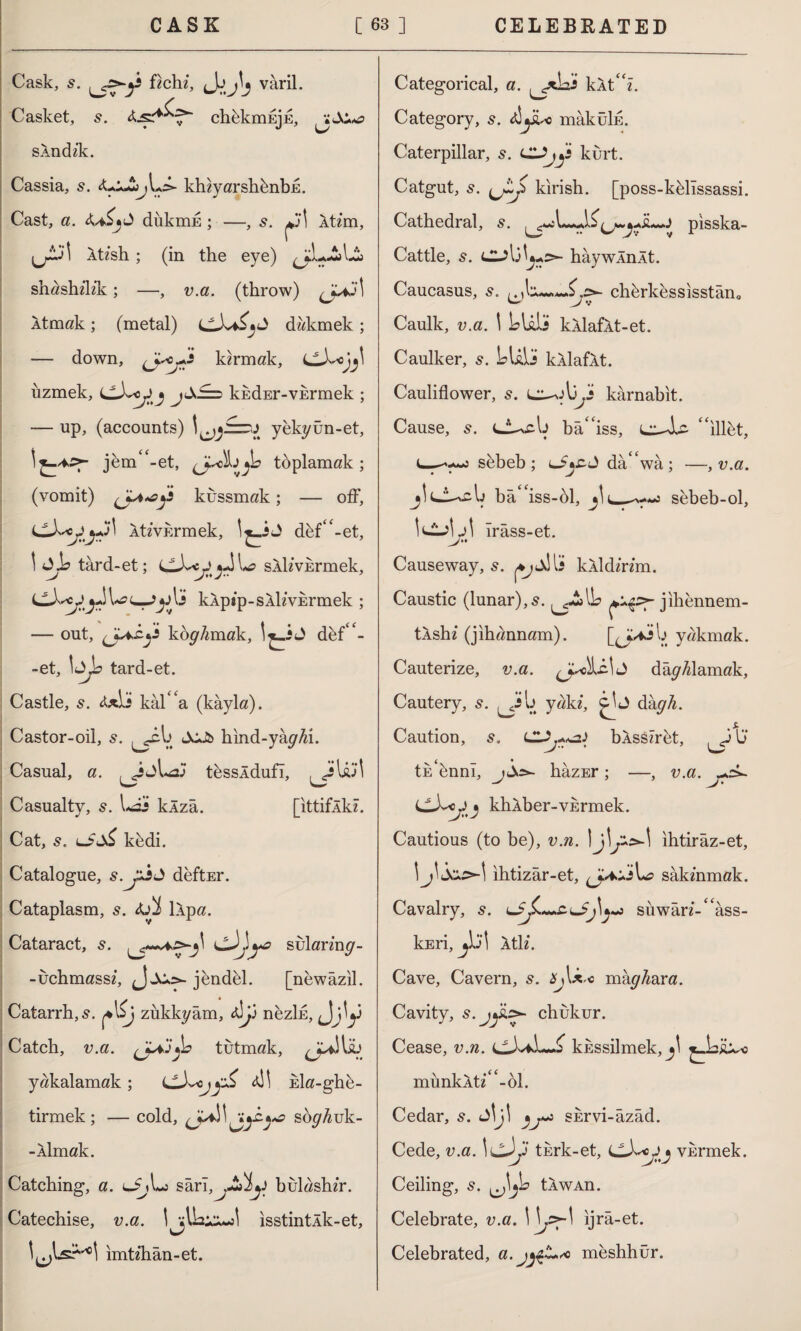 CASK [ 63 ] CELEBRATED
Cask, s. فوچی fìchi, واریل vàril.
Casket, s. چكمجه chèkmᴇjᴇ, صندق
sᴀndik.
Cassia, s. خیارشنبه khiyarshènbᴇ.
Cast, a. دوكمه dùkmᴇ ; —, s. اتم ᴀtim,
اتش ᴀtish ; (in the eye) شاشیلق
shàshilik ; —, v.a. (throw) اتمق
ᴀtmak ; (metal) دوكمك dùkmek ;
— down, قیرمق kìrmak, اوزمك
ùzmek, كدر ویرمك kᴇdᴇr-vᴇrmek ;
— up, (accounts) یكون ا yèkyūn-et,
جمع ا jèm“-et, طوپلامق tòplamak ;
(vomit) قوصمق kùssmak ; — off,
اتیویرمك ᴀtivᴇrmek, دفع ا dèf“-et,
طرد ا tàrd-et ; صالیویرمك sᴀlivᴇrmek,
قاپیوب صالیویرمك kᴀpip-sᴀlivᴇrmek ;
— out, قوغمق kòghmak, دفع ا dèf“-
-et, طرد ا tard-et.
Castle, s. قلعه kàl“a (kàyla).
Castor-oil, s. هند یاغی hìnd-yàghi.
Casual, a. تصادفی tèssᴀdufī, اتفاقی
Casualty, s. قضا kᴀzā. [ìttifᴀkī.
Cat, s. كدی kèdi.
Catalogue, s. دفتر dèftᴇr.
Cataplasm, s. لاپه lᴀpa.
Cataract, s. صولرڭ اوچمسی sùlaring-
-ùchmassi, جندل jèndèl. [nèwāzìl.
Catarrh, s. زكام zùkkyām, نزله nèzlᴇ, نوازل
Catch, v.a. طوتمق tùtmak, یقالمق
yàkalamak ; اله كتورمك ᴇla-ghè-
tirmek ; — cold, صوغوق المق sòghuk-
-ᴀlmak.
Catching, a. ساری sārī, بولاشر bulàshir.
Catechise, v.a. استنطاق ا ìsstintᴀk-et,
امتحان ا ìmtihān-et.
Categorical, a. قطعی kᴀt“ī.
Category, s. مقوله makūlᴇ.
Caterpillar, s. قورت kùrt.
Catgut, s. كرش kìrish. [poss-kèlīssassi.
Cathedral, s. پیسقپوس كلیساسی pìsska-
Cattle, s. حیوانات hàywᴀnᴀt.
Caucasus, s. چركسستان chèrkèssisstān.
Caulk, v.a. قلافاط ا kᴀlafᴀt-et.
Caulker, s. قلافاط kᴀlafᴀt.
Cauliflower, s. قرنابیت kàrnabìt.
Cause, s. باعث bā“iss, علت “illèt,
سبب sèbeb ; دعوا dà“wā ; —, v.a.
باعث او bā“iss-òl, سبب او sèbeb-ol,
ایراث ا īrāss-et.
Causeway, s. قالدیرم kᴀldirim.
Caustic (lunar), s. جهنم طاشی jihènnem-
tᴀshi (jihànnam). [یاقمق yàkmak.
Cauterize, v.a. داغلامق dāghlamak,
Cautery, s. یاقی yàki, داغ dàgh.
Caution, s. بصیرت bᴀssīrèt, تأنی
tᴇ‘ènnī, حذر hàzᴇr ; —, v.a. خبر
ویرمك khᴀber-vᴇrmek.
Cautious (to be), v.n. احتراز ا ìhtirāz-et,
احتذار ا ìhtizār-et, صاقنمق sàkinmak.
Cavalry, s. سواری عسكری sùwāri-“àss-
kᴇri, اتلو ᴀtli.
Cave, Cavern, s. مغاره màghara.
Cavity, s. چقور chukur.
Cease, v.n. كسلمك kᴇssilmek, منقطع او
mùnkᴀti“-òl.
Cedar, s. سرو ازاد sᴇrvi-āzād.
Cede, v.a. ترك ا tᴇrk-et, ویرمك vᴇrmek.
Ceiling, s. طوان tᴀwan.
Celebrate, v.a. اجرا ا ìjrā-et.
Celebrated, a. مشهور mèshhūr.